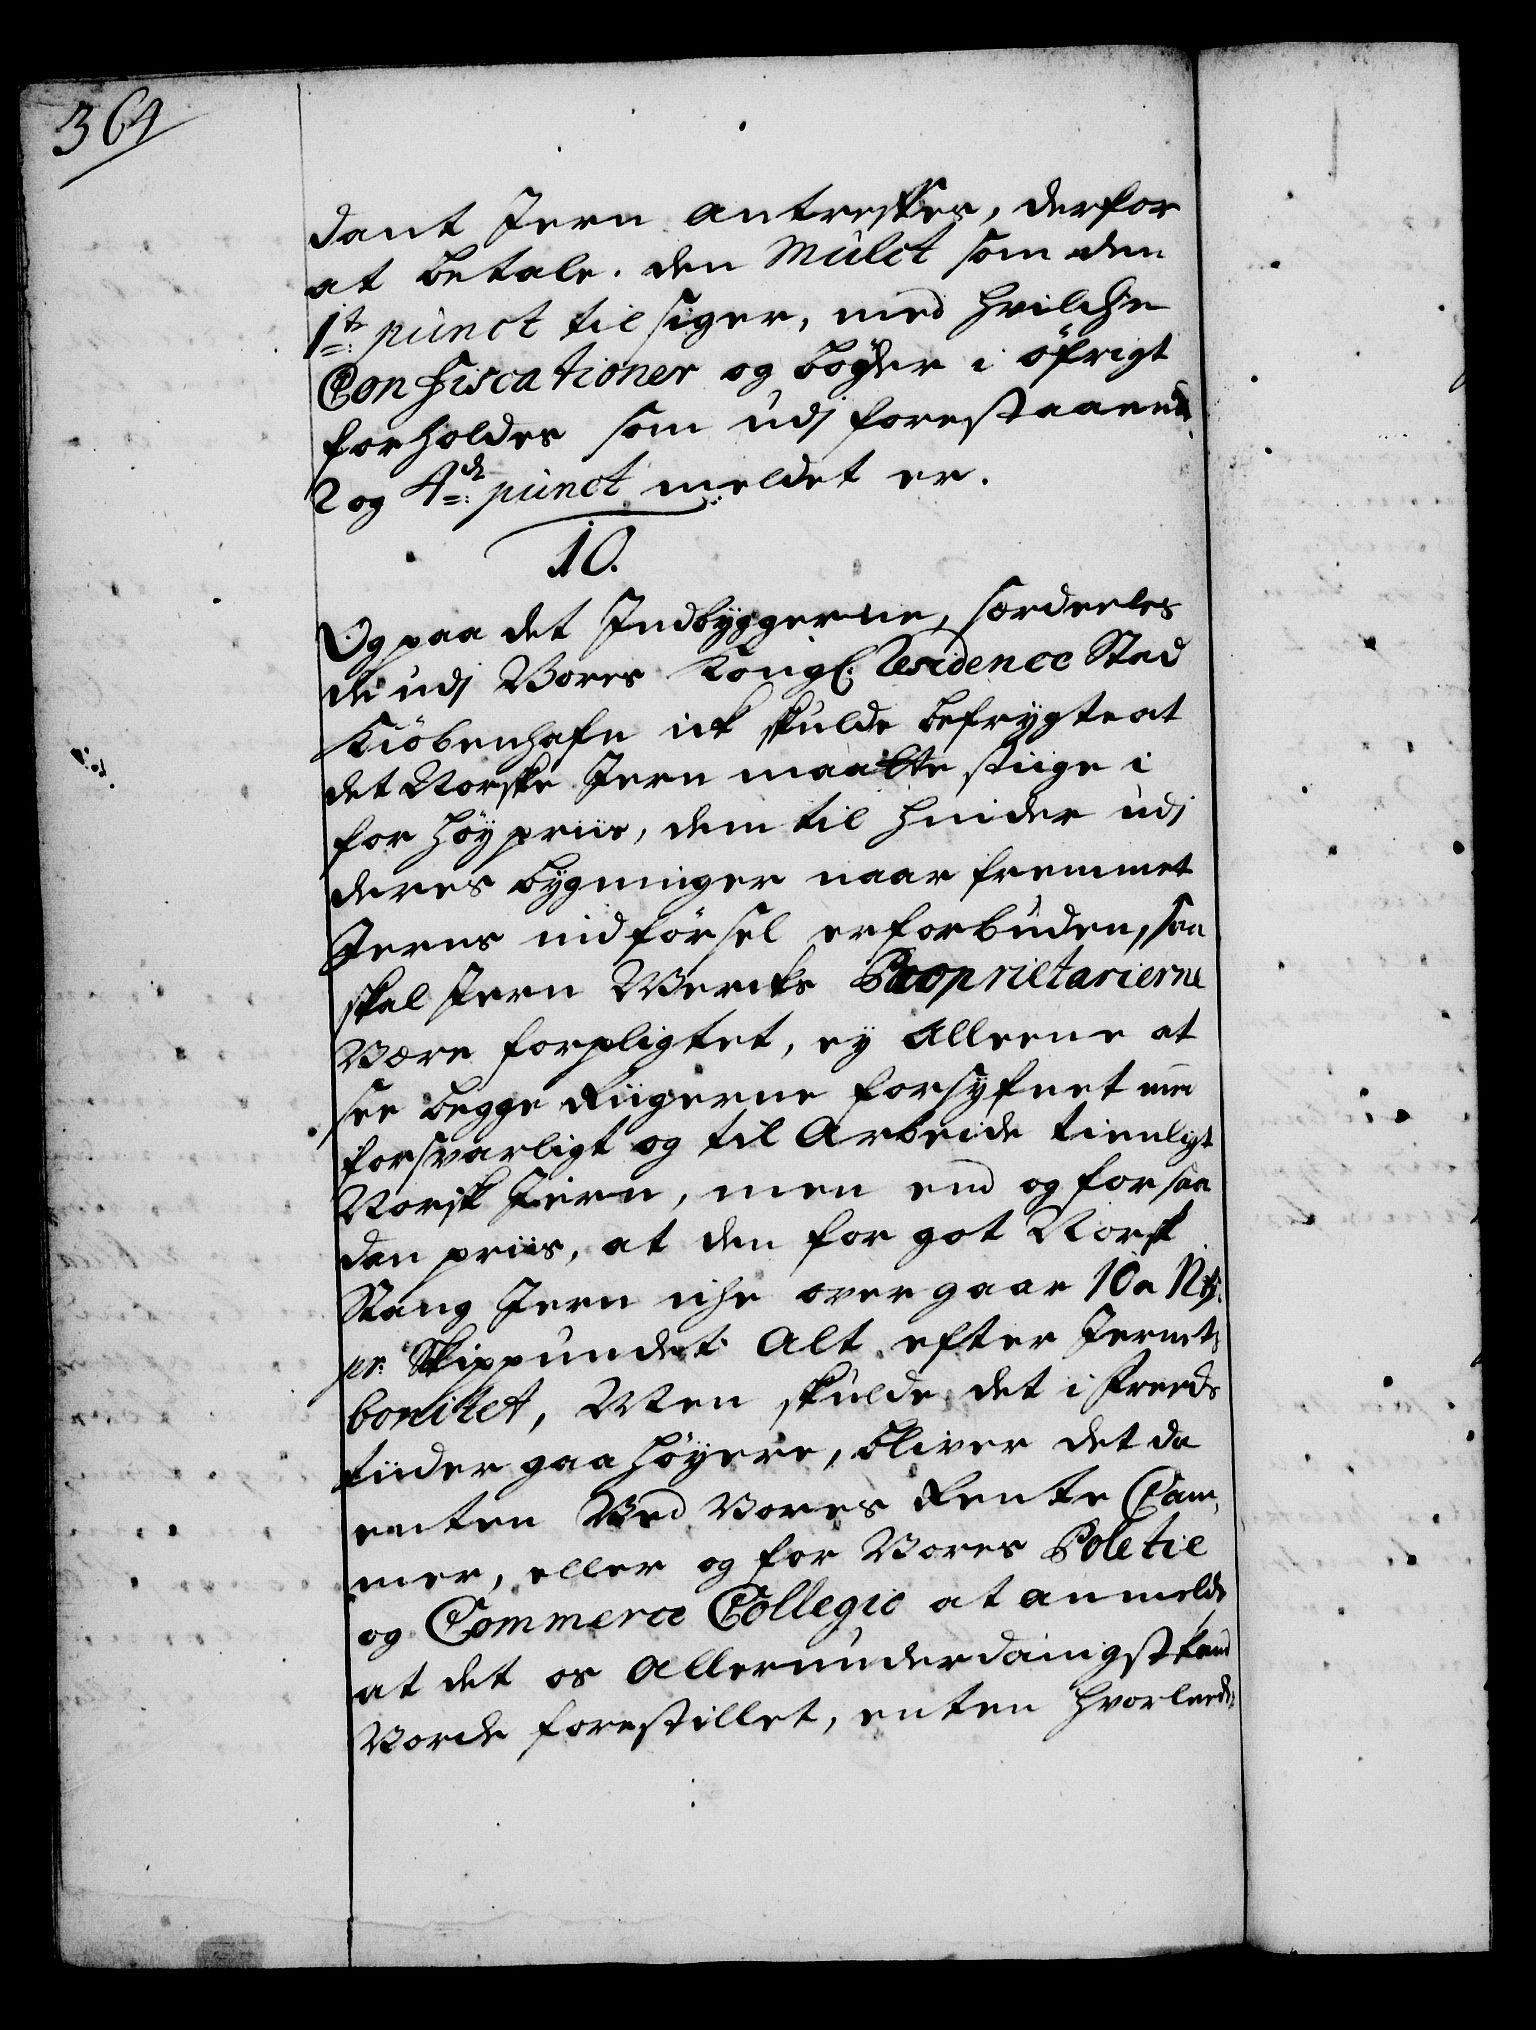 364
dant Jern antreffes, derfor
at betale den Mulct som den
1te punct tilsiger, med hvilche
Confiscationer og bøder i öfrigt
forholdes som udj forestaaende
2 og 4de punct meldet er.
10.
Og paa det Indbyggerne, særdeeles
de udj Vores Kongl: Residence Stad
Kiöbenhafn ick skulde befrygte at
det Norske Jern maatte stiige i
for höy priis, dem til hinder udj
deres bygninger naar fremmet
Jerns indförsel er forbuden, saa
skal Jern Wercks Proprietarierne
Være forpligtet, ey alleene at
see begge Riigerne forsyfnet med
forsvarligt og til Arbeide tienligt
Norsk Jern, men end og for saa
dan priis, at den for got Norsk
Stang Jern iche overgaar 10 a 12 rdr.
pr: Skippundet Alt efter Jernets
bonitet, Men skulde det i Freds
tiider gaa höyere, bliver det da
enten Ved Vores Rente Cam,
mer, eller og for Vores Poletie
og Commerce Collegio at anmelde
at det os Allerunderdanigst kand
Vorde forestillet, enten hvorleedes